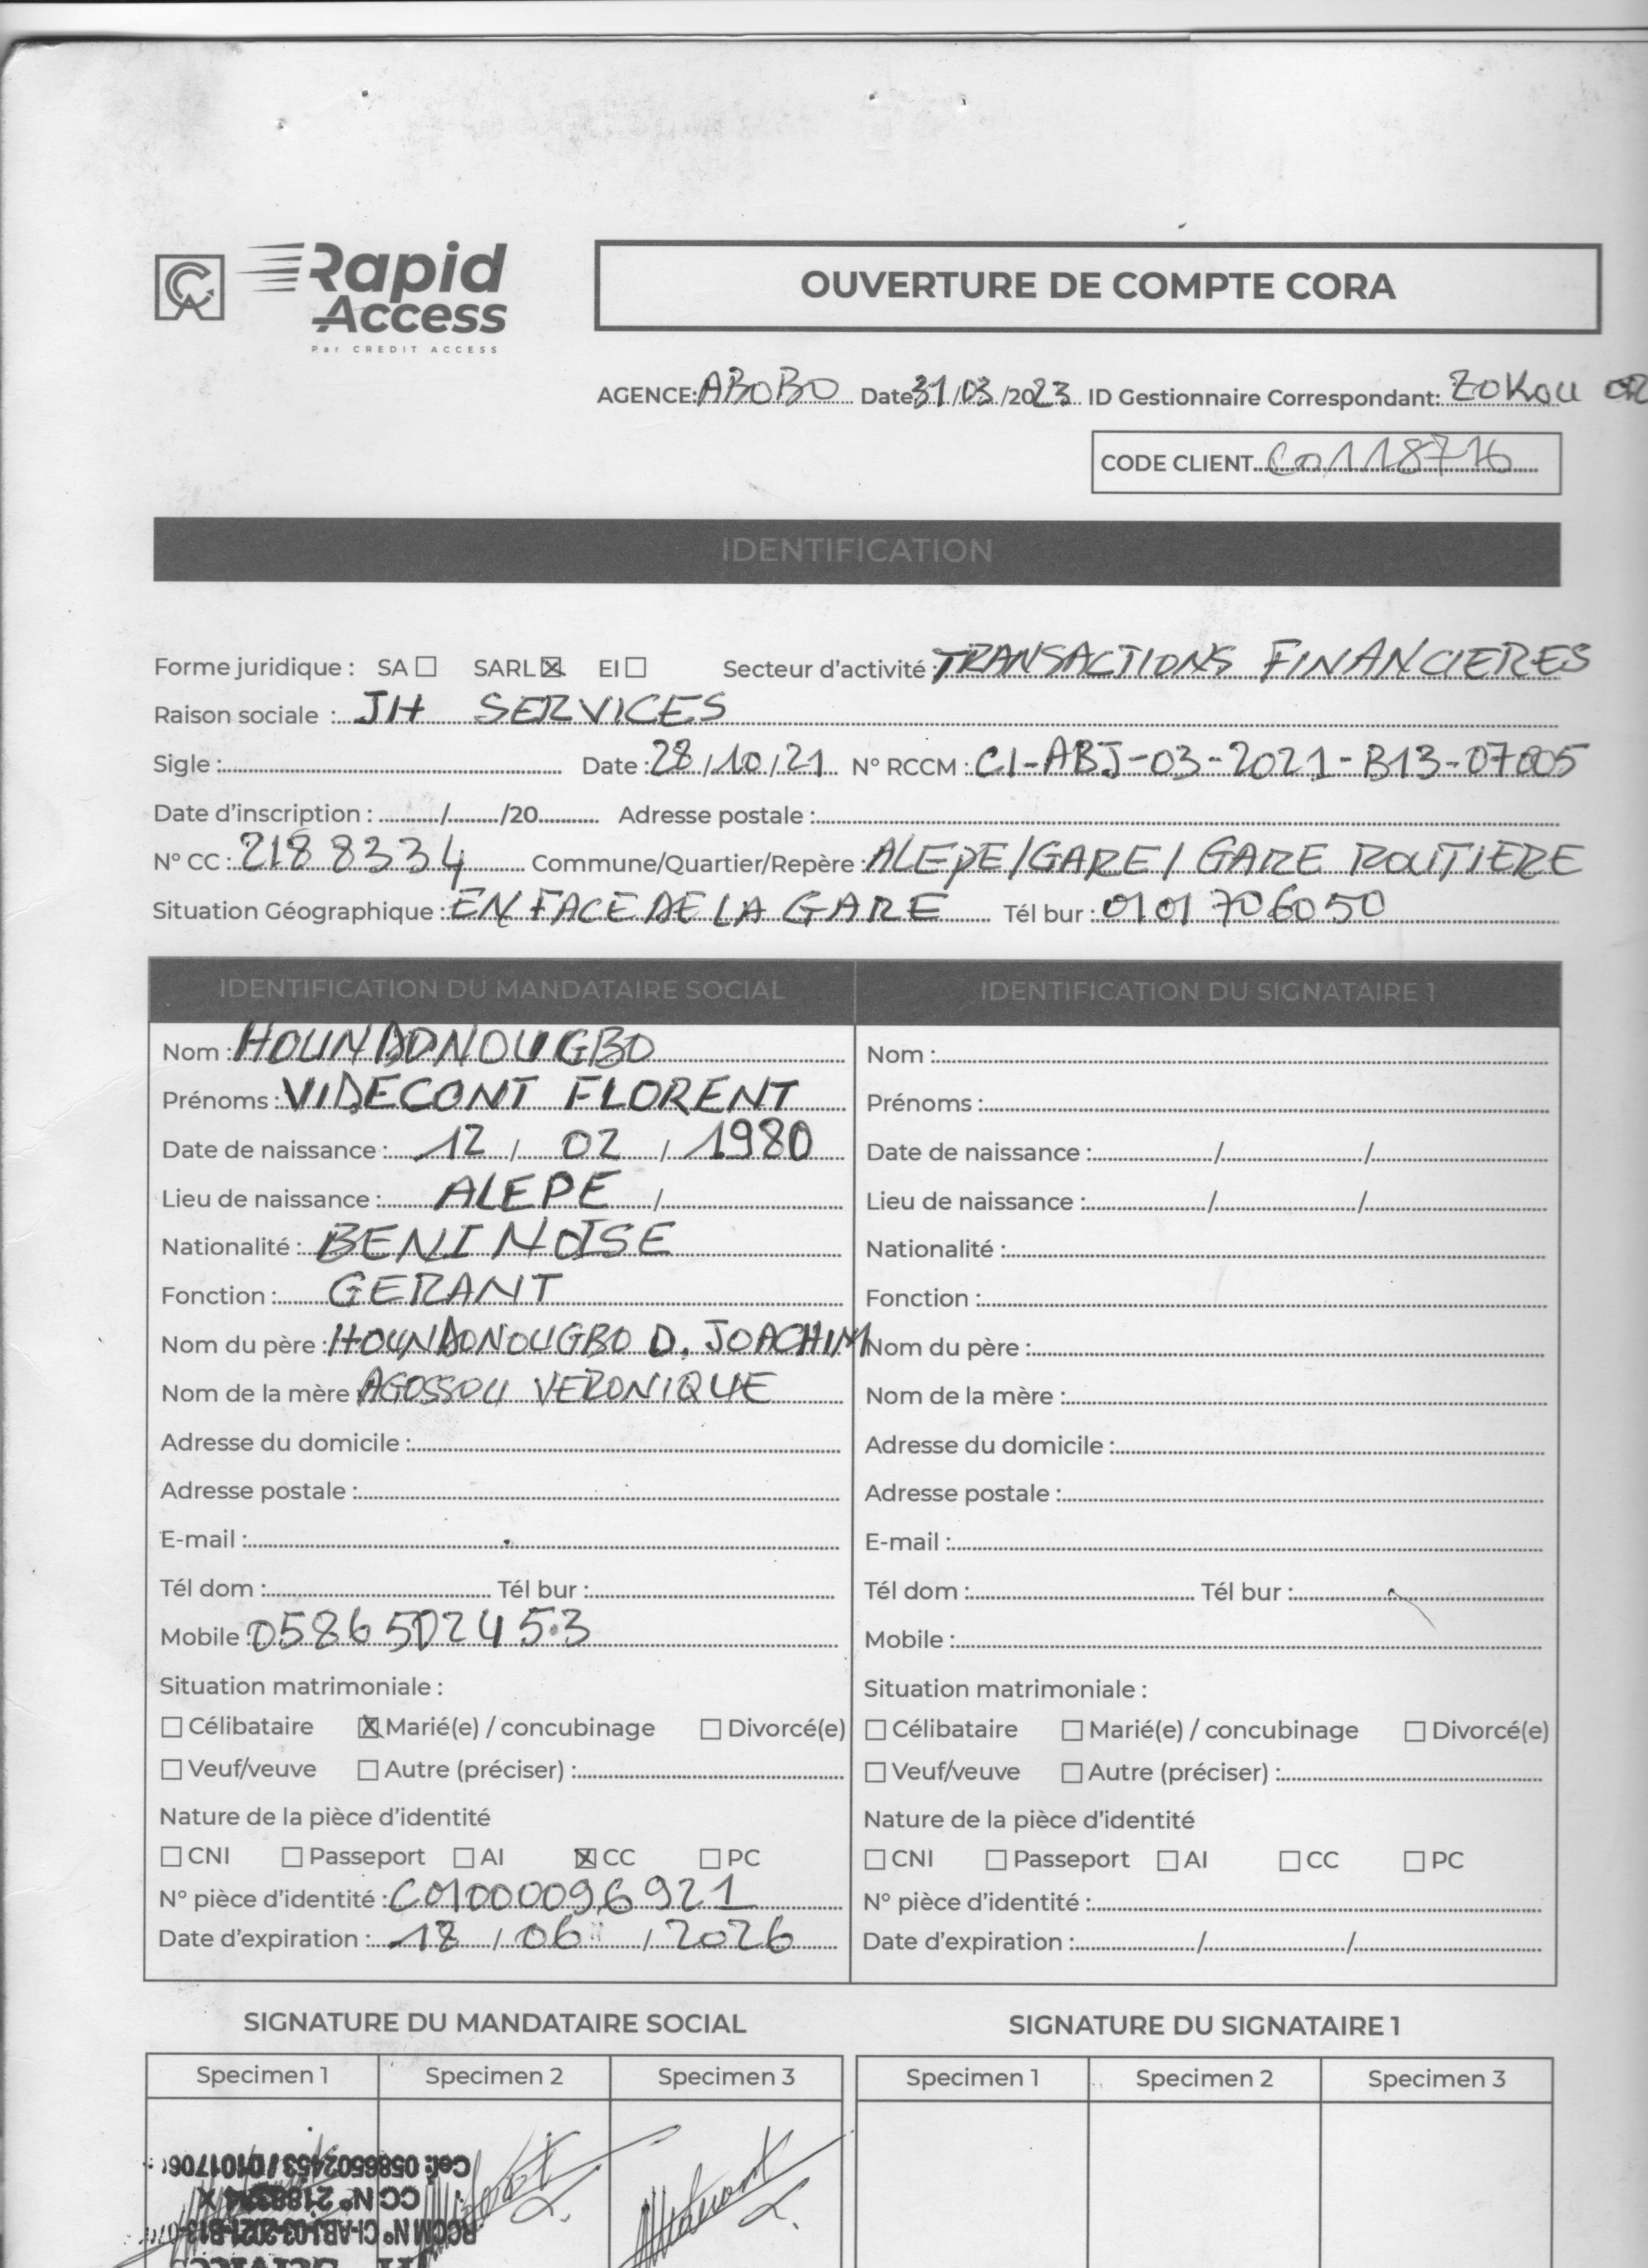 CA Rapid Access
Par CREDIT ACCESS
OUVERTURE DE COMPTE CORA
AGENCE: ABOBO Date 31/03/2023 ID Gestionnaire Correspondant: ZOKOU
CODE CLIENT C0118776
IDENTIFICATION
Forme juridique : SA☐ SARL☒ EI☐ Secteur d'activité : TRANSACTIONS FINANCIERES
Raison sociale : JH SERVICES
Sigle : Date : 28/10/21 N° RCCM : CI-ABJ-03-2021-B13-07005
Date d'inscription : ........../........./20........... Adresse postale :
N° CC : 2188334 Commune/Quartier/Repère : ALEPE/GARE/ GARE ROUTIERE
Situation Géographique : EN FACE DE LA GARE Tél bur : 0101706050
IDENTIFICATION DU MANDATAIRE SOCIAL
Nom : HOUNDONOUGBO
Prénoms : VIDECONT FLORENT
Date de naissance : 12 / 02 / 1980
Lieu de naissance : ALEPE /
Nationalité : BENINOISE
Fonction : GERANT
Nom du père : HOUNDONOUGBO D. JOACHIM
Nom de la mère AGOSSOU VERONIQUE
Adresse du domicile :
Adresse postale :
E-mail :
Tél dom : Tél bur :
Mobile : 0586502453
Situation matrimoniale :
☐ Célibataire ☒ Marié(e) / concubinage ☐ Divorcé(e)
☐ Veuf/veuve ☐ Autre (préciser) :
Nature de la pièce d'identité
☐ CNI ☐ Passeport ☐ AI ☒ CC ☐ PC
N° pièce d'identité : C01000096921
Date d'expiration : 18 / 06 / 2026
IDENTIFICATION DU SIGNATAIRE 1
Nom :
Prénoms :
Date de naissance : / /
Lieu de naissance : / /
Nationalité :
Fonction :
Nom du père :
Nom de la mère :
Adresse du domicile :
Adresse postale :
E-mail :
Tél dom : Tél bur :
Mobile :
Situation matrimoniale :
☐ Célibataire ☐ Marié(e) / concubinage ☐ Divorcé(e)
☐ Veuf/veuve ☐ Autre (préciser) :
Nature de la pièce d'identité
☐ CNI ☐ Passeport ☐ AI ☐ CC ☐ PC
N° pièce d'identité :
Date d'expiration : / /
SIGNATURE DU MANDATAIRE SOCIAL
Specimen 1 Specimen 2 Specimen 3
SIGNATURE DU SIGNATAIRE 1
Specimen 1 Specimen 2 Specimen 3
Cel: 0586502453 / 0101706
CC N° 2188334 X
RCCM N° CI-ABJ-03-2021-B13-070